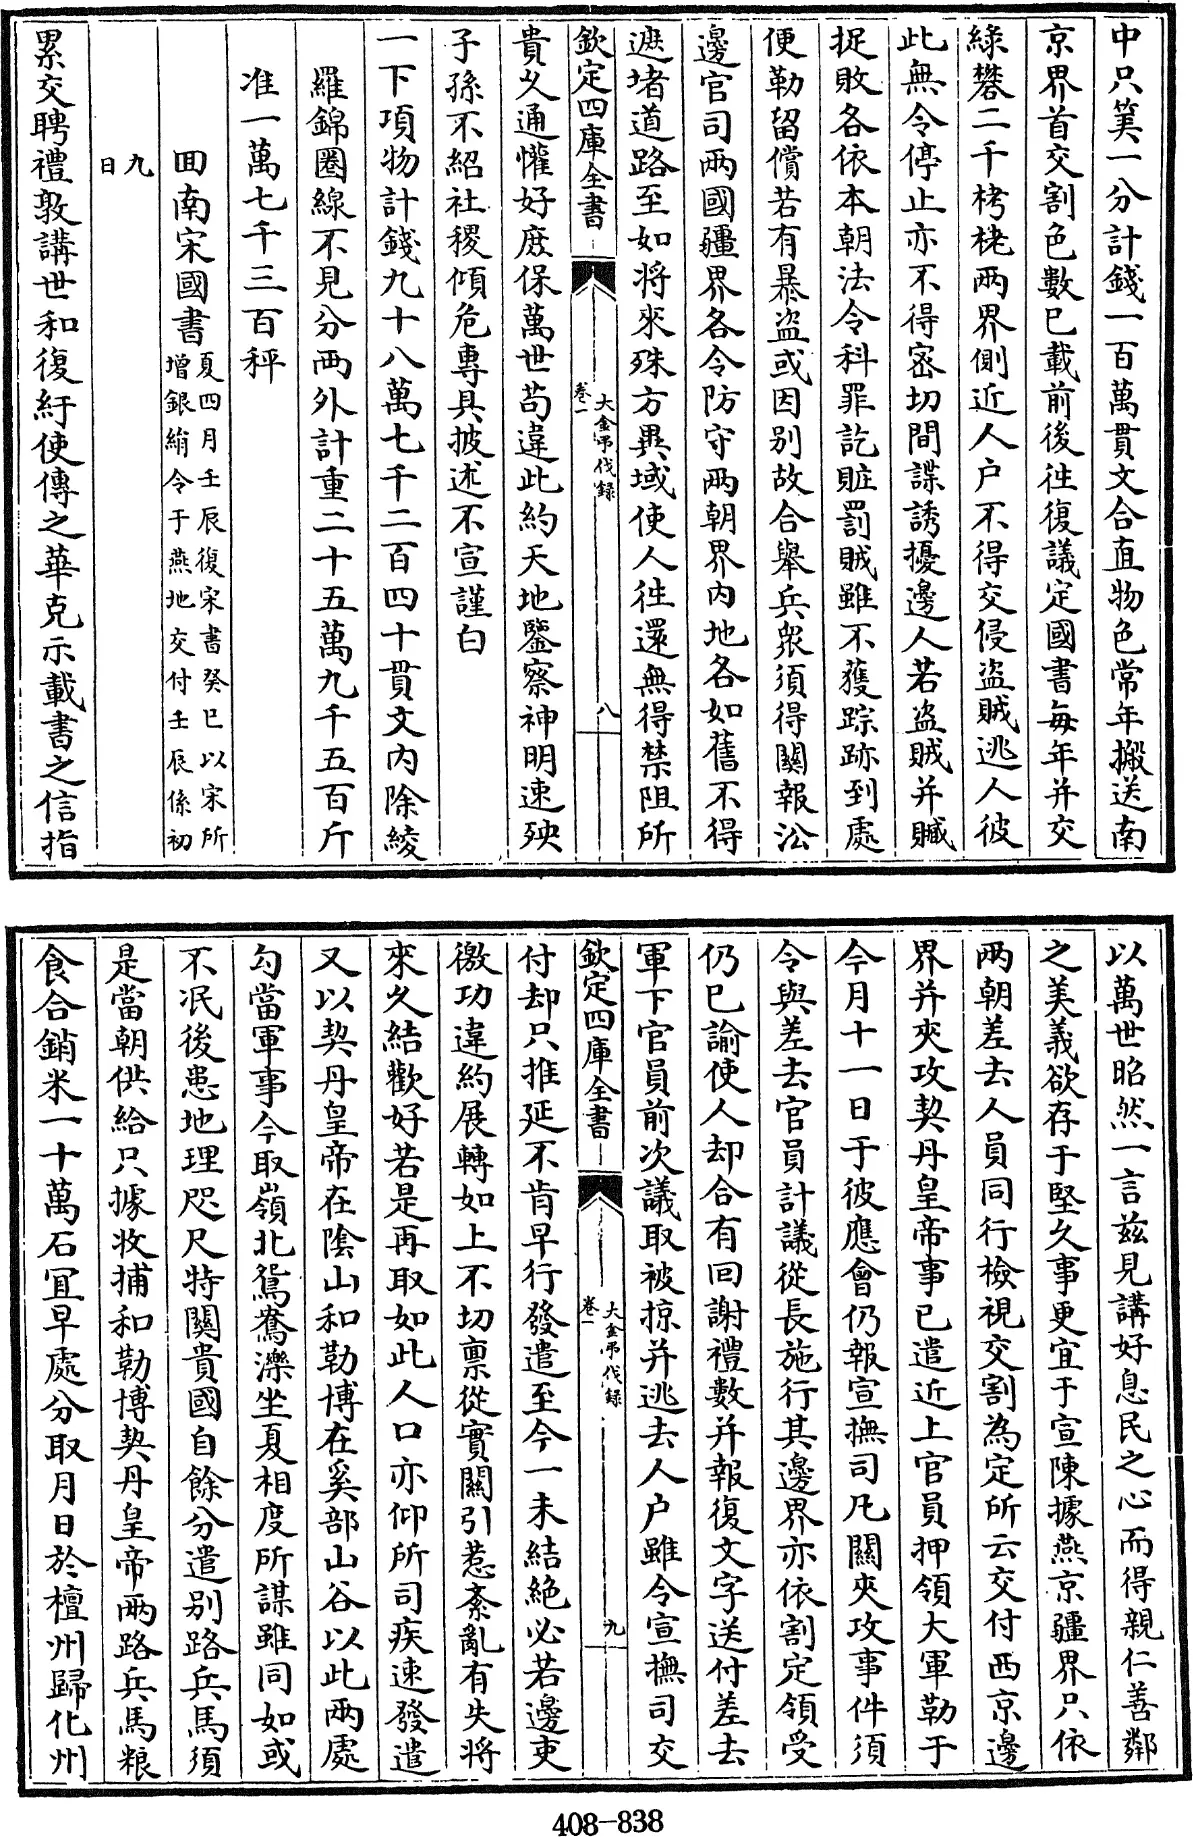 中只筭一分計錢一百萬貫文合直物色常年搬送南
京界首交割色數已載前後徃復議定國書每年并交
綠礬二千栲栳两界側近人户不得交侵盗賊逃人彼
此無令停止亦不得密切間諜誘擾邊人若盗賊并贓
捉敗各依本朝法令科罪訖賍罰賊雖不獲踪跡到處
便勒留償若有暴盗或因别故合舉兵衆須得關報沿
邊官司两國疆界各令防守两朝界内地各如舊不得
遮堵道路至如将來殊方異域使人徃還無得禁阻所
欽定四庫全書
大金弔伐録
卷一
八
貴久通懽好庶保萬世苟違此約天地鑒察神明速殃
子孫不紹社稷傾危專具披述不宣謹白
一下項物計錢九十八萬七千二百四十貫文内除綾
羅錦圈線不見分两外計重二十五萬九千五百斤
准一萬七千三百秤
囬南宋國書夏四月壬辰復宋書癸已以宋所
增銀絹令于燕地交付壬辰係初
九
日
累交聘禮敦講世和復紆使傳之華克示載書之信指
以萬世昭然一言兹見講好息民之心而得親仁善鄰
之美義欲存于堅久事更宜于宣陳據燕京疆界只依
两朝差去人員同行檢視交割為定所云交付西京邊
界并夾攻契丹皇帝事已遣近上官員押領大軍勒于
今月十一日于彼應會仍報宣撫司凡關夾攻事件須
令與差去官員計議從長施行其邊界亦依割定領受
仍已諭使人却合有回謝禮數并報復文字送付差去
軍下官員前次議取被掠并逃去人户雖令宣撫司交
欽定四庫全書
大金弔伐録
卷一
九
付却只推延不肯早行發遣至今一未結絶必若邊吏
徼功違約展轉如上不切禀從實關引惹紊亂有失将
來久結歡好若是再取如此人口亦仰所司疾速發遣
又以契丹皇帝在隂山和勒博在奚部山谷以此两處
勾當軍事今取嶺北鴛鴦濼坐夏相度所謀雖同如或
不泯後患地理咫尺特關貴國自餘分遣别路兵馬須
是當朝供給只據收捕和勒博契丹皇帝两路兵馬粮
食合銷米一十萬石宜早處分取月日於檀州歸化州
408-838